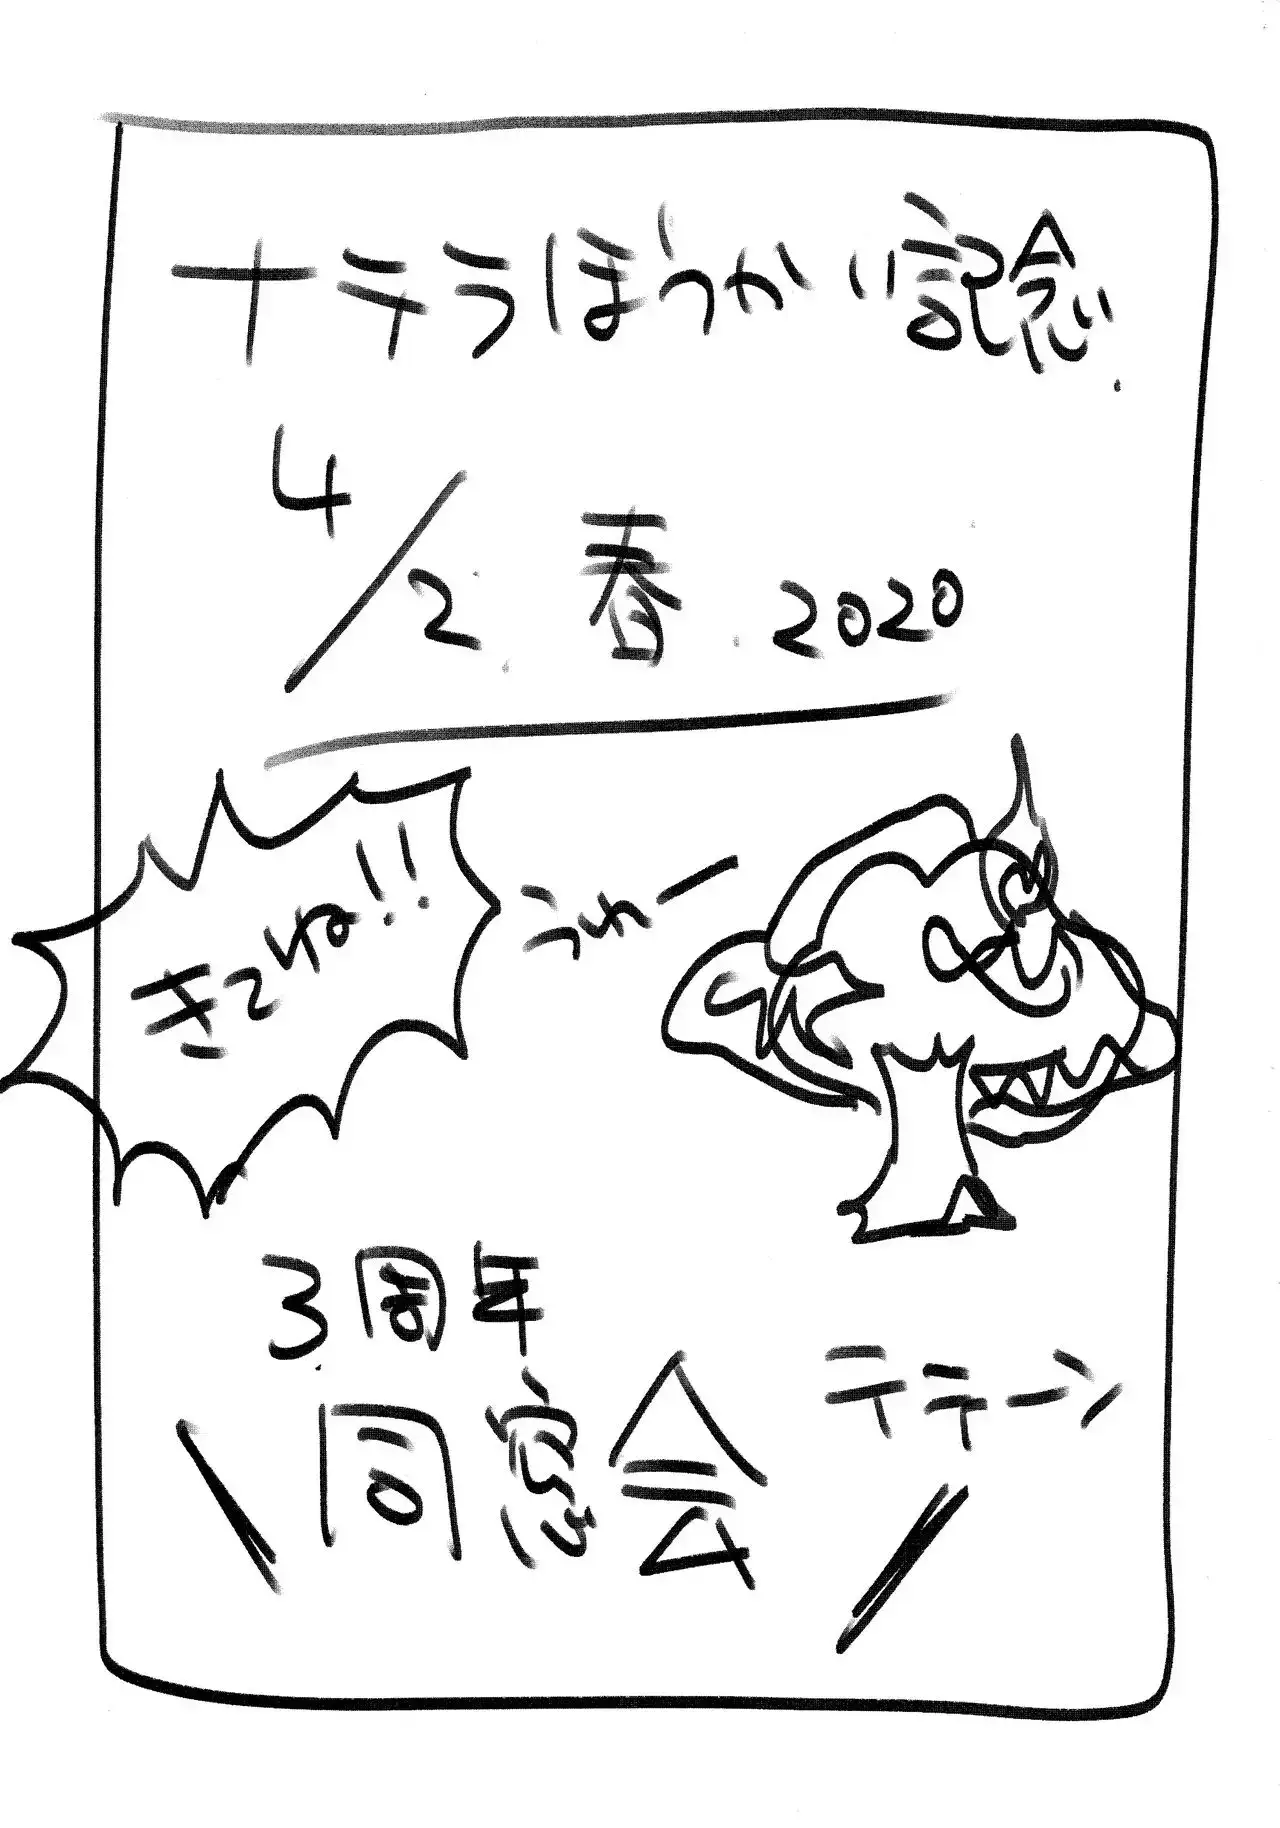 十テラぼうかい記念
4/2 春 2020
きてね!!
うわー
3周年
同窓会
テテーン